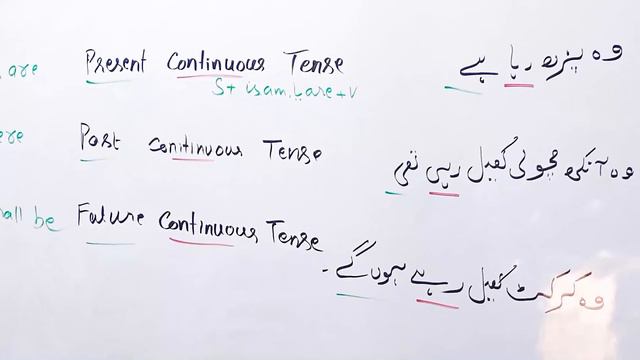 are Present Continuous Tense وہ پڑھ رہا ہے
S+ is am are +V
ere Past Conitinuous Tense وہ آنکھ مچولی کھیل رہی تھی
all be Future Continuous Tense
وہ کرکٹ کھیل رہے ہوں گے ۔